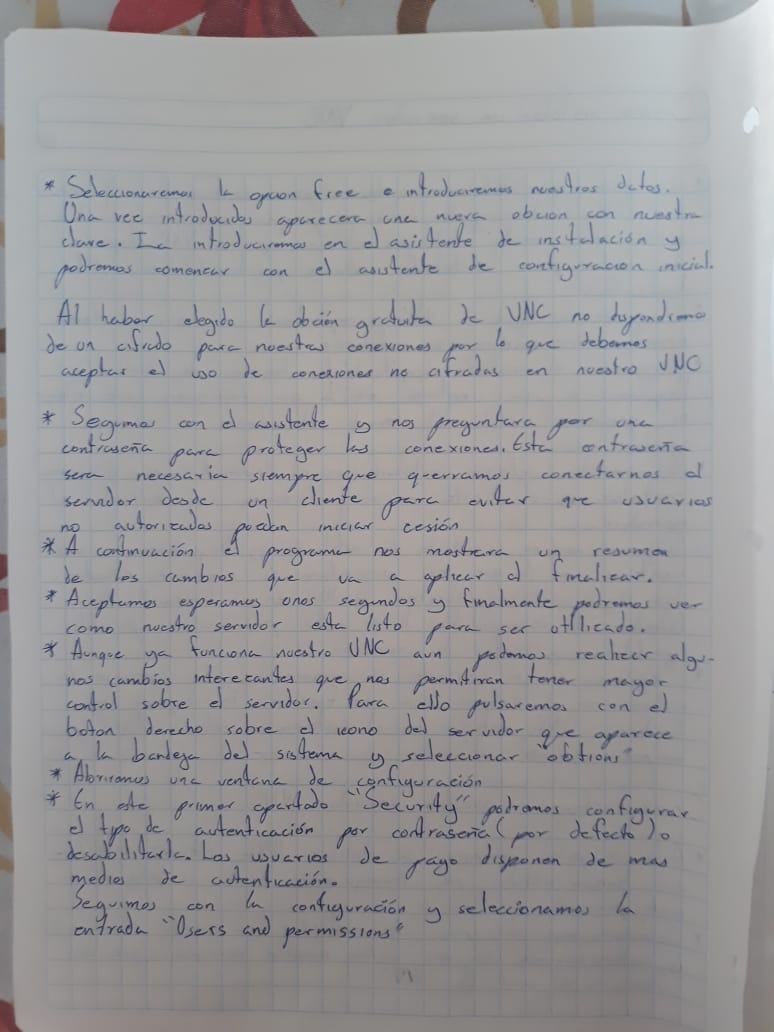 * Seleccionaremos la opcion free e introduciremos nuestros datos.
Una vec introducidos aparecera una nueva obcion con nuestra
clave. La introduciremos en el asistente de instalación y
podremos comencar con el asistente de configuracion inicial.
Al haber elegido la obción gratuita de VNC no dispondremos
de un cifrado para nuestras conexiones por lo que debemos
aceptar el uso de conexiones no cifradas en nuestro VNC
* Seguimos con el asistente y nos preguntara por una
contraseña para proteger las conexiones. Esta contraseña
sera necesaria siempre que querramos conectarnos al
servidor desde un cliente para evitar que usuarios
no autoricados puedan iniciar cesión
* A continuación el programa nos mostrara un resumen
de los cambios que va a aplicar al finalicar.
* Aceptamos esperamos unos segundos y finalmente podremos ver
como nuestro servidor esta listo para ser utilicado.
* Aunque ya funciona nuestro VNC aun podemos realicer algu-
nos cambios interecantes que nos permitiran tener mayor
control sobre el servidor. Para ello pulsaremos con el
boton derecho sobre el icono del servidor que aparece
a la bandeja del sistema y seleccionar "obtions"
* Abriramos una ventana de configuración
* En este primer apartado "Security" podremos configurar
el tipo de autenticación por contraseña (por defecto) o
desabilitarla. Los usuarios de pago disponen de mas
medios de autenticación.
Seguimos con la configuración y seleccionamos la
entrada "Users and permissions"